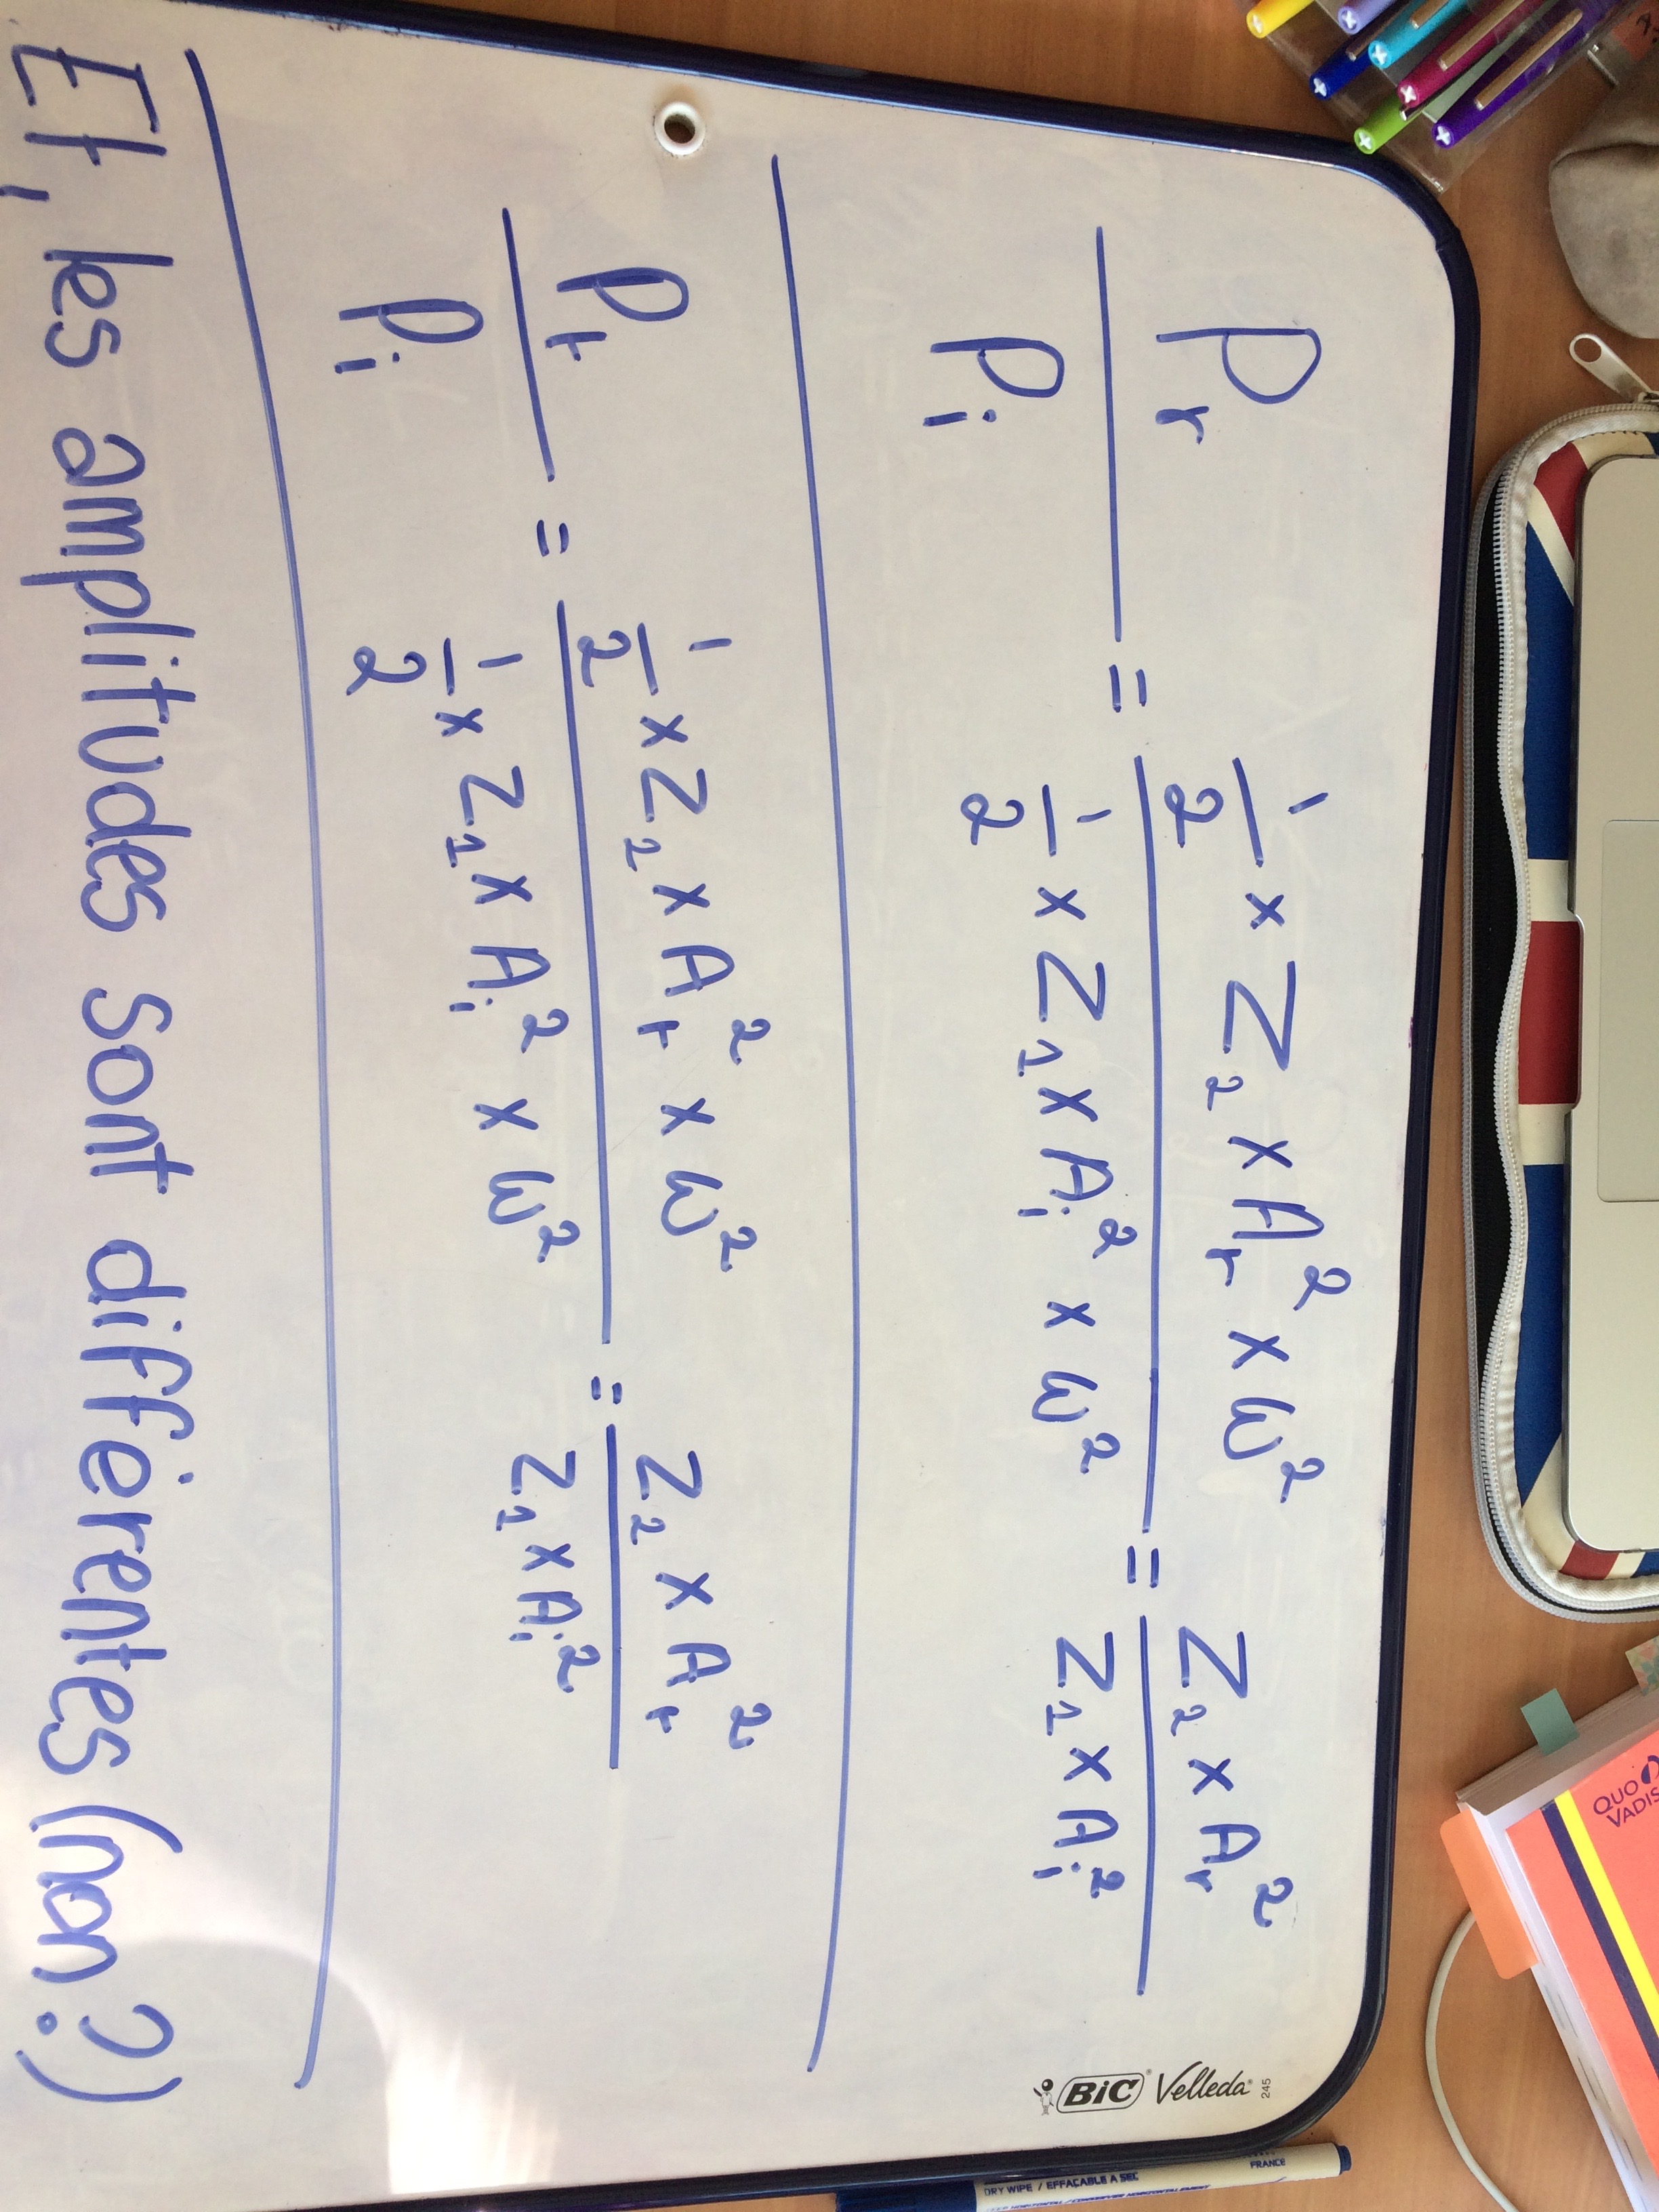 Pr/Pi = (1/2 × Z₂ × Ar² × ω²)/(1/2 × Z₁ × Ai² × ω²) = (Z₂ × Ar²)/(Z₁ × Ai²)
Pt/Pi = (1/2 × Z₂ × At² × ω²)/(1/2 × Z₁ × Ai² × ω²) = (Z₂ × At²)/(Z₁ × Ai²)
Et, les amplitudes sont différentes (non?)
BiC® Velleda® 245
FRANCE
DRY WIPE / EFFAÇABLE A SEC
QUO VADIS